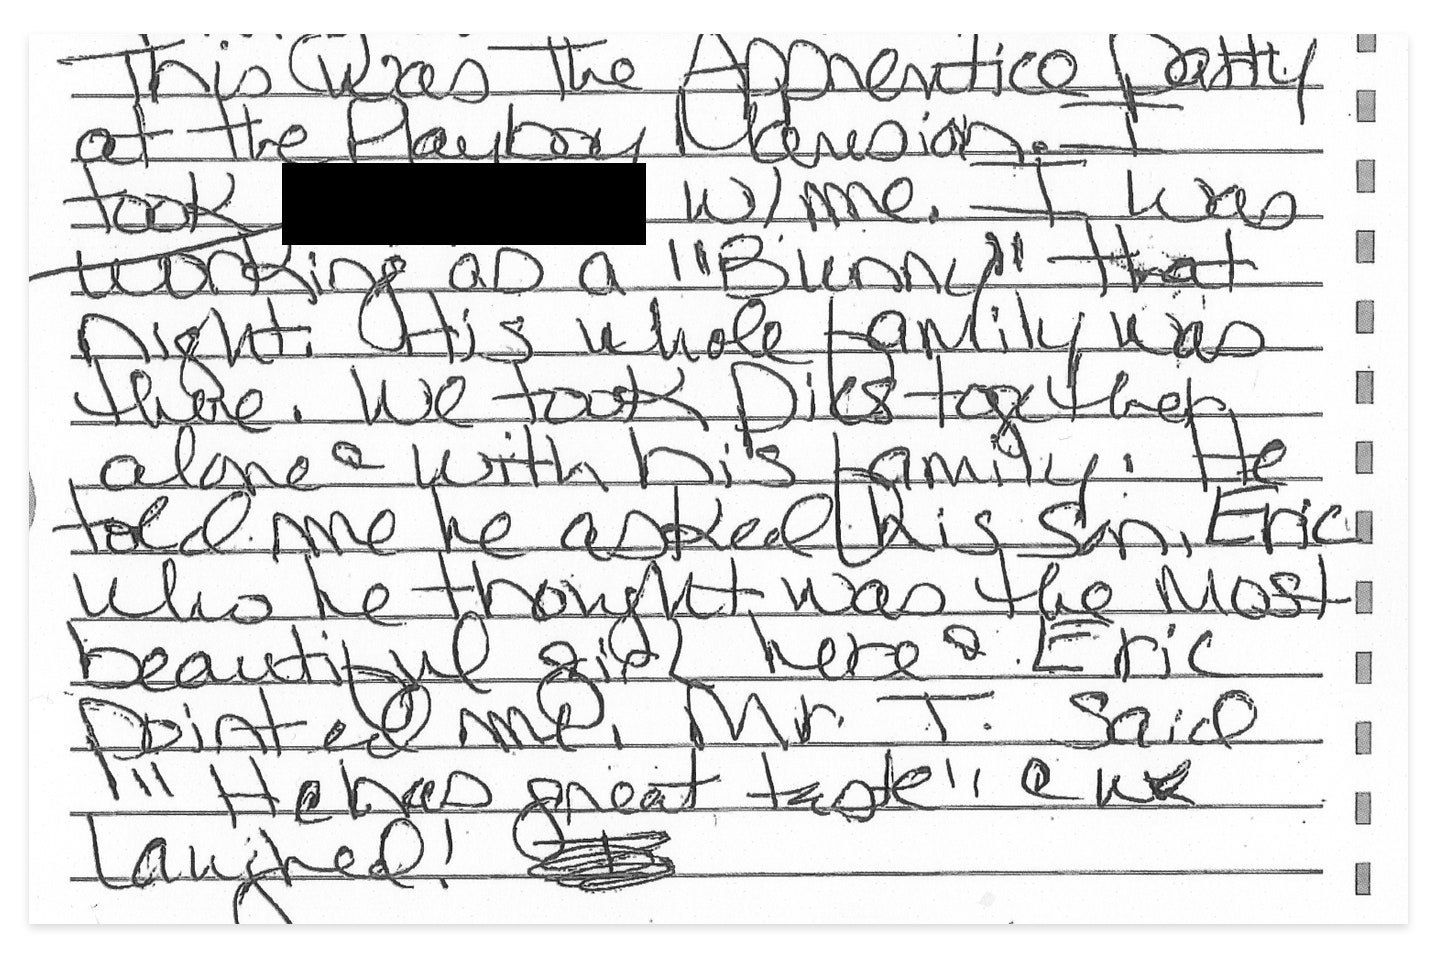 This was the Apprentice Party
at the Playboy Mansion. I
took w/me. I was
working as a "Bunny" that
night. His whole family was
there. We took pics together,
alone & with his family. He
told me he asked his son, Eric
who he thought was the most
beautiful girl here & Eric
pointed me. Mr. T. said
"He has great taste" & we
laughed!